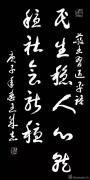 习近平语
民生稳人心就
稳社会就稳
庚子年